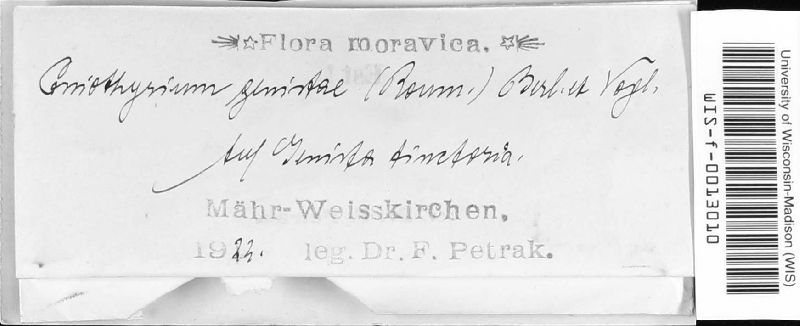 Flora moravica.
Coniothyrium genistae (Roum.) Berl. et Vogl.
Auf Genista tinctoria.
Mähr-Weisskirchen.
1922. leg. Dr. F. Petrak.
University of Wisconsin-Madison (WIS)
WIS-f-0013010